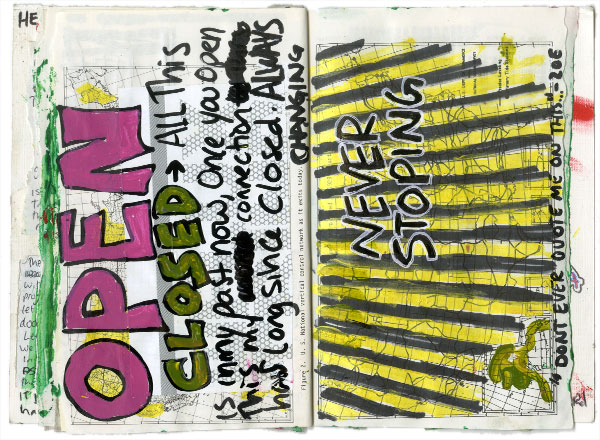 HE
OPEN
CLOSED → ALL THIS
IS IN my past now, Once you open
This my connection
has long since closed. ALWAYS
CHANGING
Figure 2. U. S. National vertical control network as it exists today
NEVER
STOPING
"DONT EVER QUOTE ME ON THIS... -ZOE